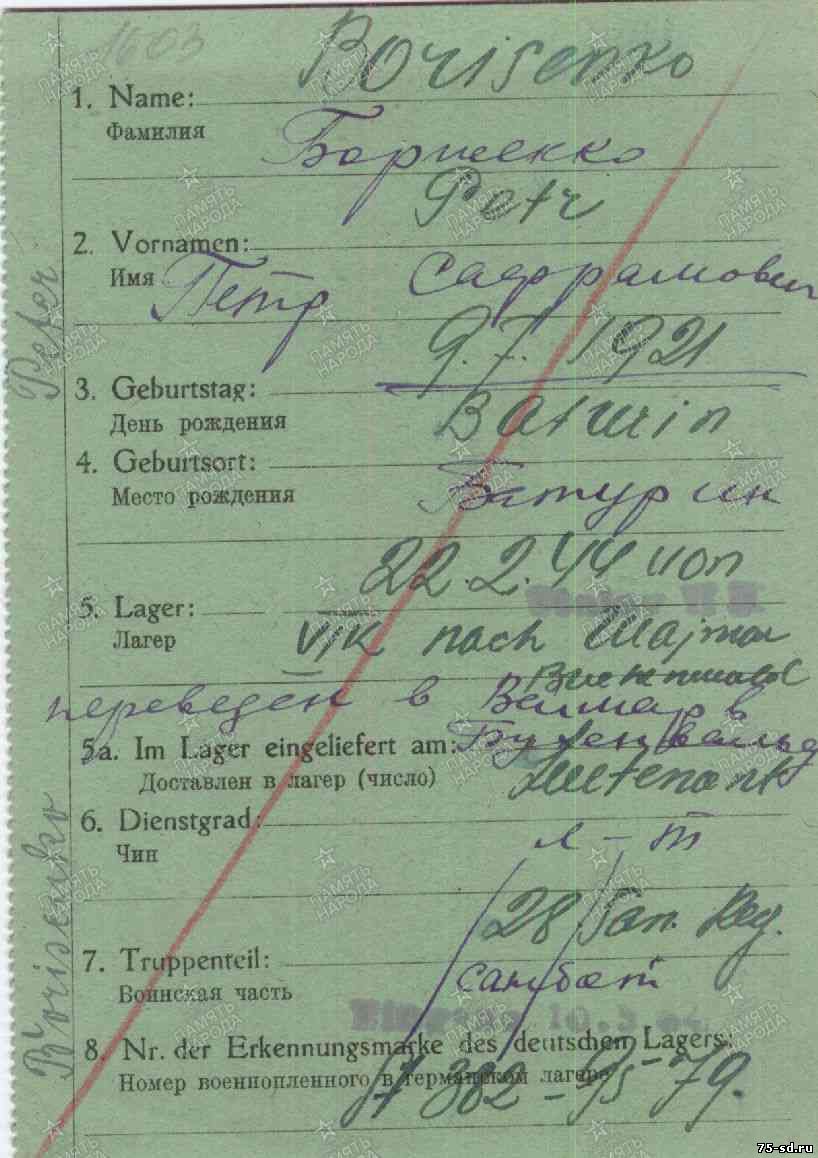 1603
Borisenko
1. Name:
Фамилия
Борисенко
Petr
2. Vornamen:
Имя Петр Сафрамович
9.7. 1921
3. Geburtstag:
День рождения
Baturin
4. Geburtsort:
Место рождения
Батурин
22.2.44 von
5. Lager:
Лагер
VIK nach Wajmar
Buchenwald
переведен в Веймар в
5a. Im Lager eingeliefert am: Бухенвальд
Доставлен в лагер (число)
Leutenant
6. Dienstgrad:
Чин
л-т
28 San. Reg.
7. Truppenteil:
Воинская часть
санбат
Eingang 10.3.44
8. Nr. der Erkennungsmarke des deutschen Lagers:
Номер военнопленного в германском лагере
382-95-79.
Peter
Borisenko
ПАМЯТЬ НАРОДА
75-sd.ru